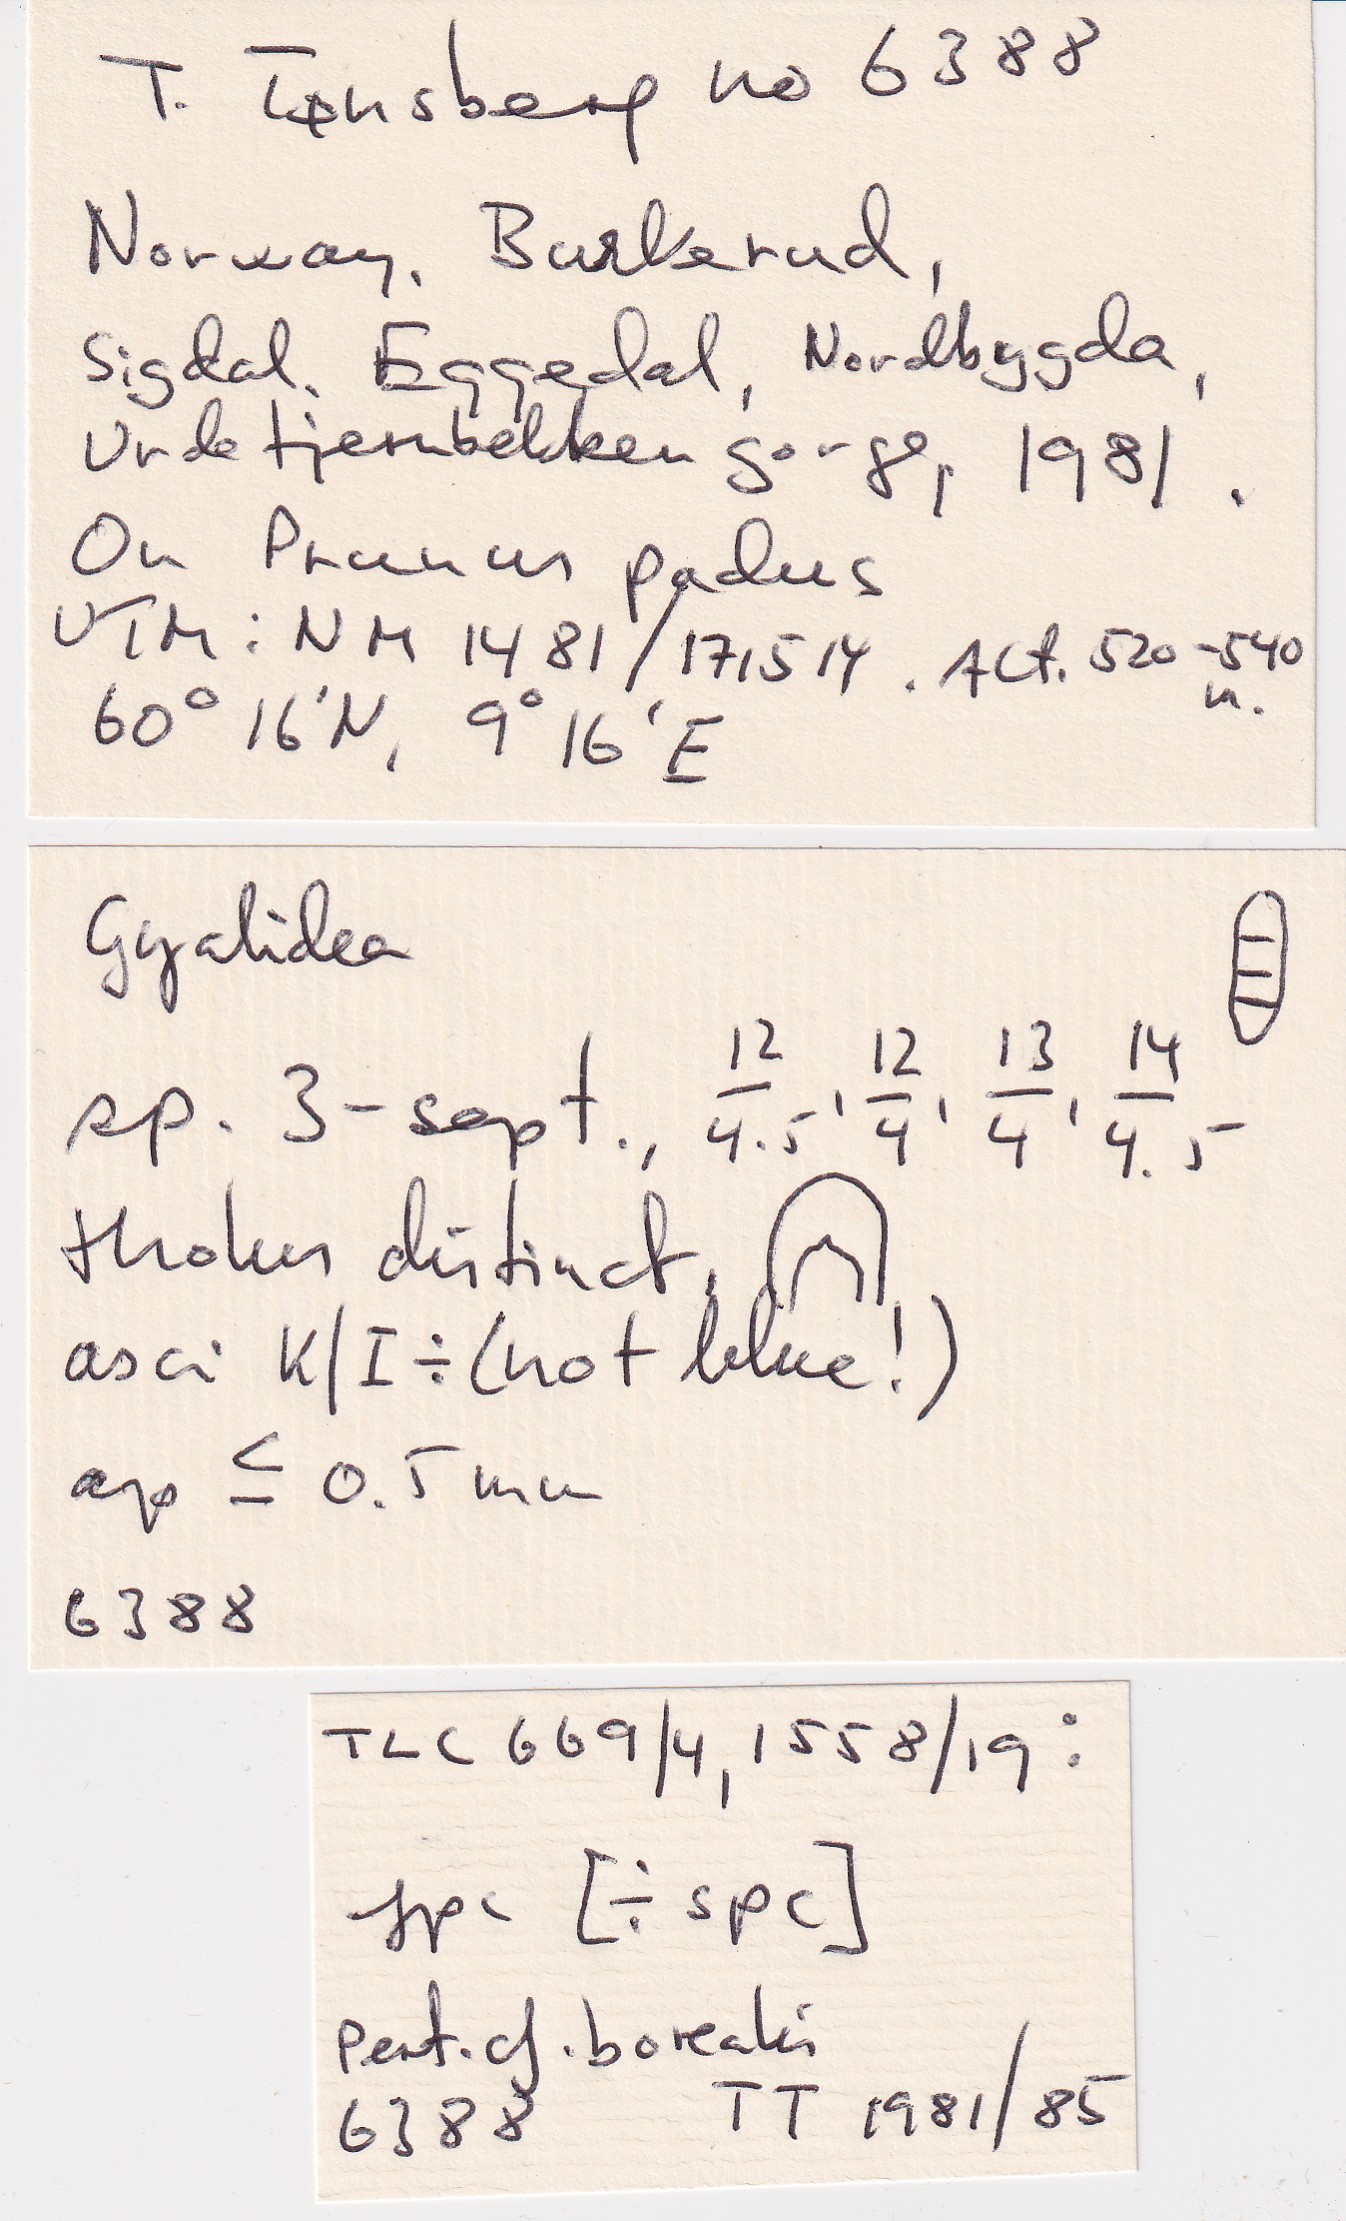 T. Tønsberg no 6388
Norway. Buskerud,
Sigdal. Eggedal, Nordbygda,
Urdetjernbekken gorge, 1981.
On Prunus padus
UTM: NM 1481/171514. Alt. 520-540
m.
60° 16'N, 9° 16'E
Gyalidea
sp. 3-sept., 12/4.5, 12/4, 13/4, 14/4.5
tholus distinct,
asci K/I ÷ (not blue!)
ap ≤ 0.5 mm
6388
TLC 669/4, 1558/19:
fpc [÷ spc]
Pert. cf. borealis
6388 TT 1981/85